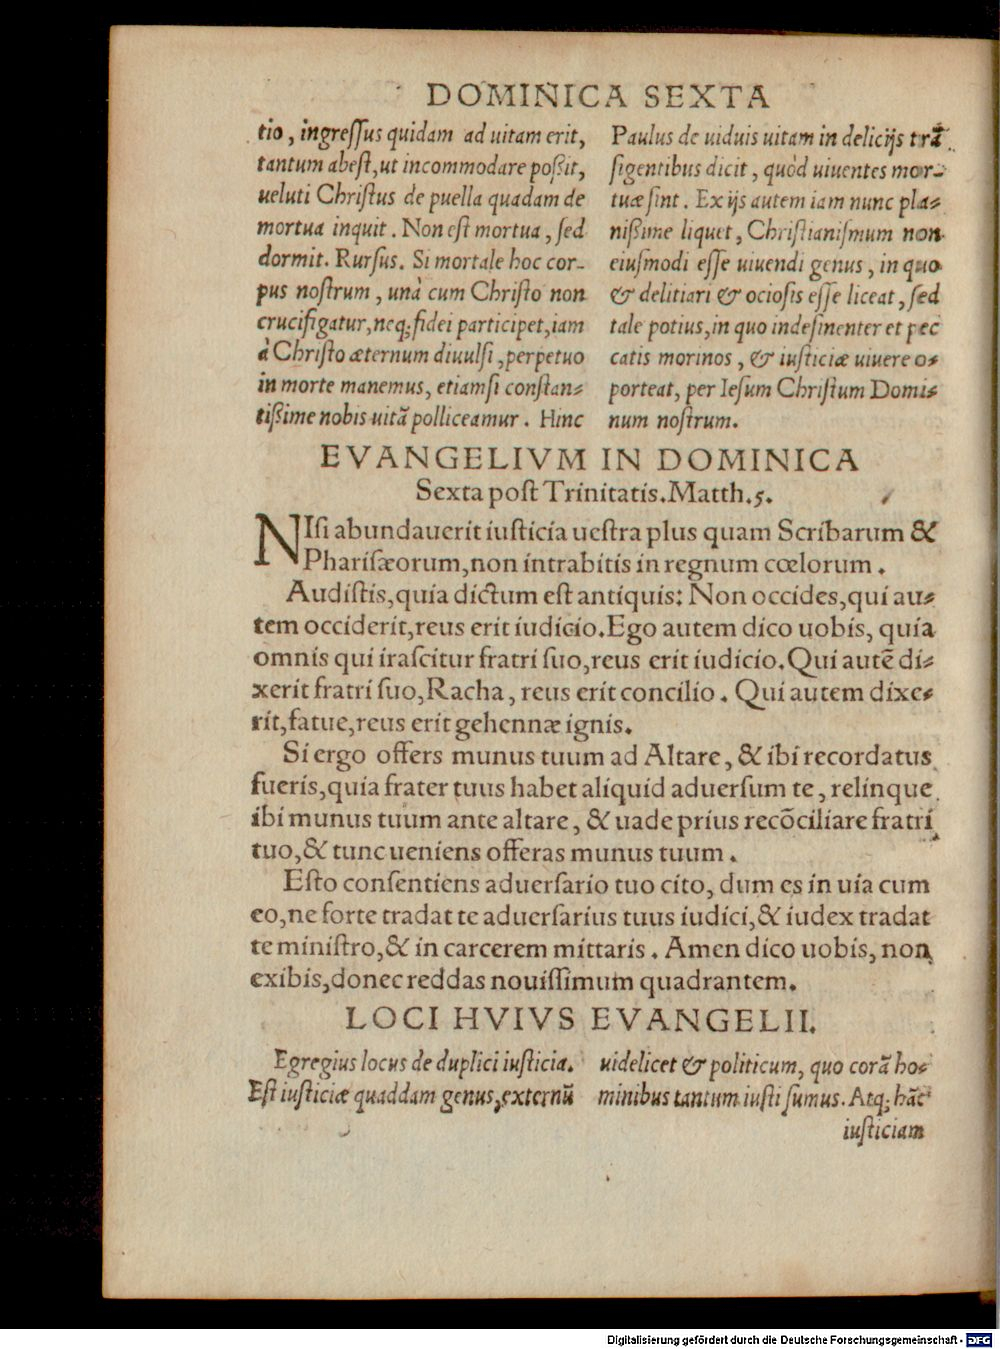 DOMINICA SEXTA
tio, ingressus quidam ad uitam erit,
tantum abest, ut incommodare poßit,
ueluti Christus de puella quadam de
mortua inquit. Non est mortua, sed
dormit. Rursus. Si mortale hoc cor-
pus nostrum, unà cum Christo non
crucifigatur, neq; fidei participet, iam
à Christo æternum diuulsi, perpetuo
in morte manemus, etiamsi constan-
tißime nobis uitā polliceamur. Hinc
Paulus de uiduis uitam in delicijs trā
sigentibus dicit, quòd uiuentes mor-
tuæ sint. Ex ijs autem iam nunc pla-
nißime liquet, Christianismum non
eiusmodi esse uiuendi genus, in quo
& delitiari & ociosis esse liceat, sed
tale potius, in quo indesinenter et pec
catis morinos, & iusticiæ uiuere o-
porteat, per Iesum Christum Domi-
num nostrum.
EVANGELIVM IN DOMINICA
Sexta post Trinitatis. Matth. 5.
NIsi abundauerit iusticia uestra plus quam Scribarum &
Pharisæorum, non intrabitis in regnum cœlorum.
Audistis, quia dictum est antiquis: Non occides, qui au-
tem occiderit, reus erit iudicio. Ego autem dico uobis, quia
omnis qui irascitur fratri suo, reus erit iudicio. Qui autē di-
xerit fratri suo, Racha, reus erit concilio. Qui autem dixe-
rit, fatue, reus erit gehennæ ignis.
Si ergo offers munus tuum ad Altare, & ibi recordatus
fueris, quia frater tuus habet aliquid aduersum te, relinque
ibi munus tuum ante altare, & uade prius recōciliare fratri
tuo, & tunc ueniens offeras munus tuum.
Esto consentiens aduersario tuo cito, dum es in uia cum
eo, ne forte tradat te aduersarius tuus iudici, & iudex tradat
te ministro, & in carcerem mittaris. Amen dico uobis, non
exibis, donec reddas nouissimum quadrantem.
LOCI HVIVS EVANGELII.
Egregius locus de duplici iusticia.
Est iusticiæ quaddam genus, externū
uidelicet & politicum, quo corā ho-
minibus tantum iusti sumus. Atq; hāc
iusticiam
Digitalisierung gefördert durch die Deutsche Forschungsgemeinschaft - DFG